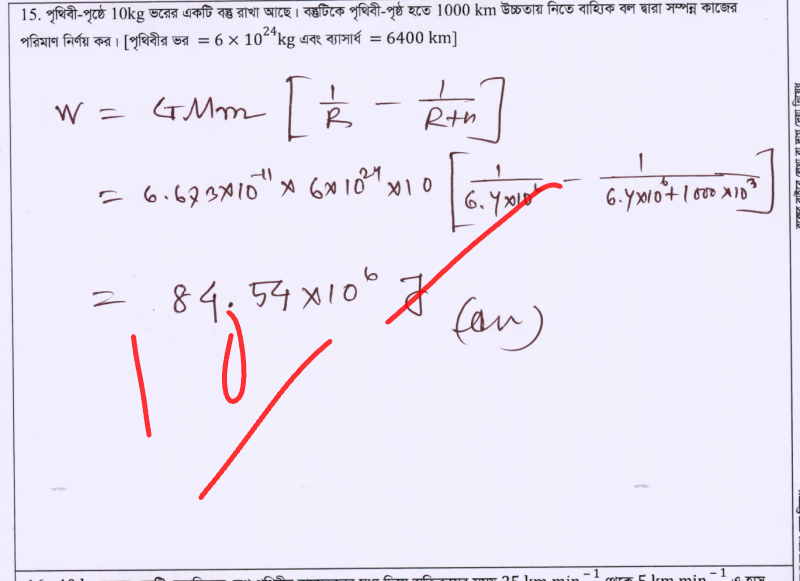 15. পৃথিবী-পৃষ্ঠে 10kg ভরের একটি বস্তু রাখা আছে। বস্তুটিকে পৃথিবী-পৃষ্ঠ হতে 1000 km উচ্চতায় নিতে বাহ্যিক বল দ্বারা সম্পন্ন কাজের
পরিমাণ নির্ণয় কর। [পৃথিবীর ভর = 6 × 10^24 kg এবং ব্যাসার্ধ = 6400 km]
W = GMm [1/R - 1/(R+h)]
= 6.673×10^-11 × 6×10^24 ×10 [1/(6.4×10^6) - 1/(6.4×10^6+1000×10^3)]
= 84.54×10^6 J (an)
10